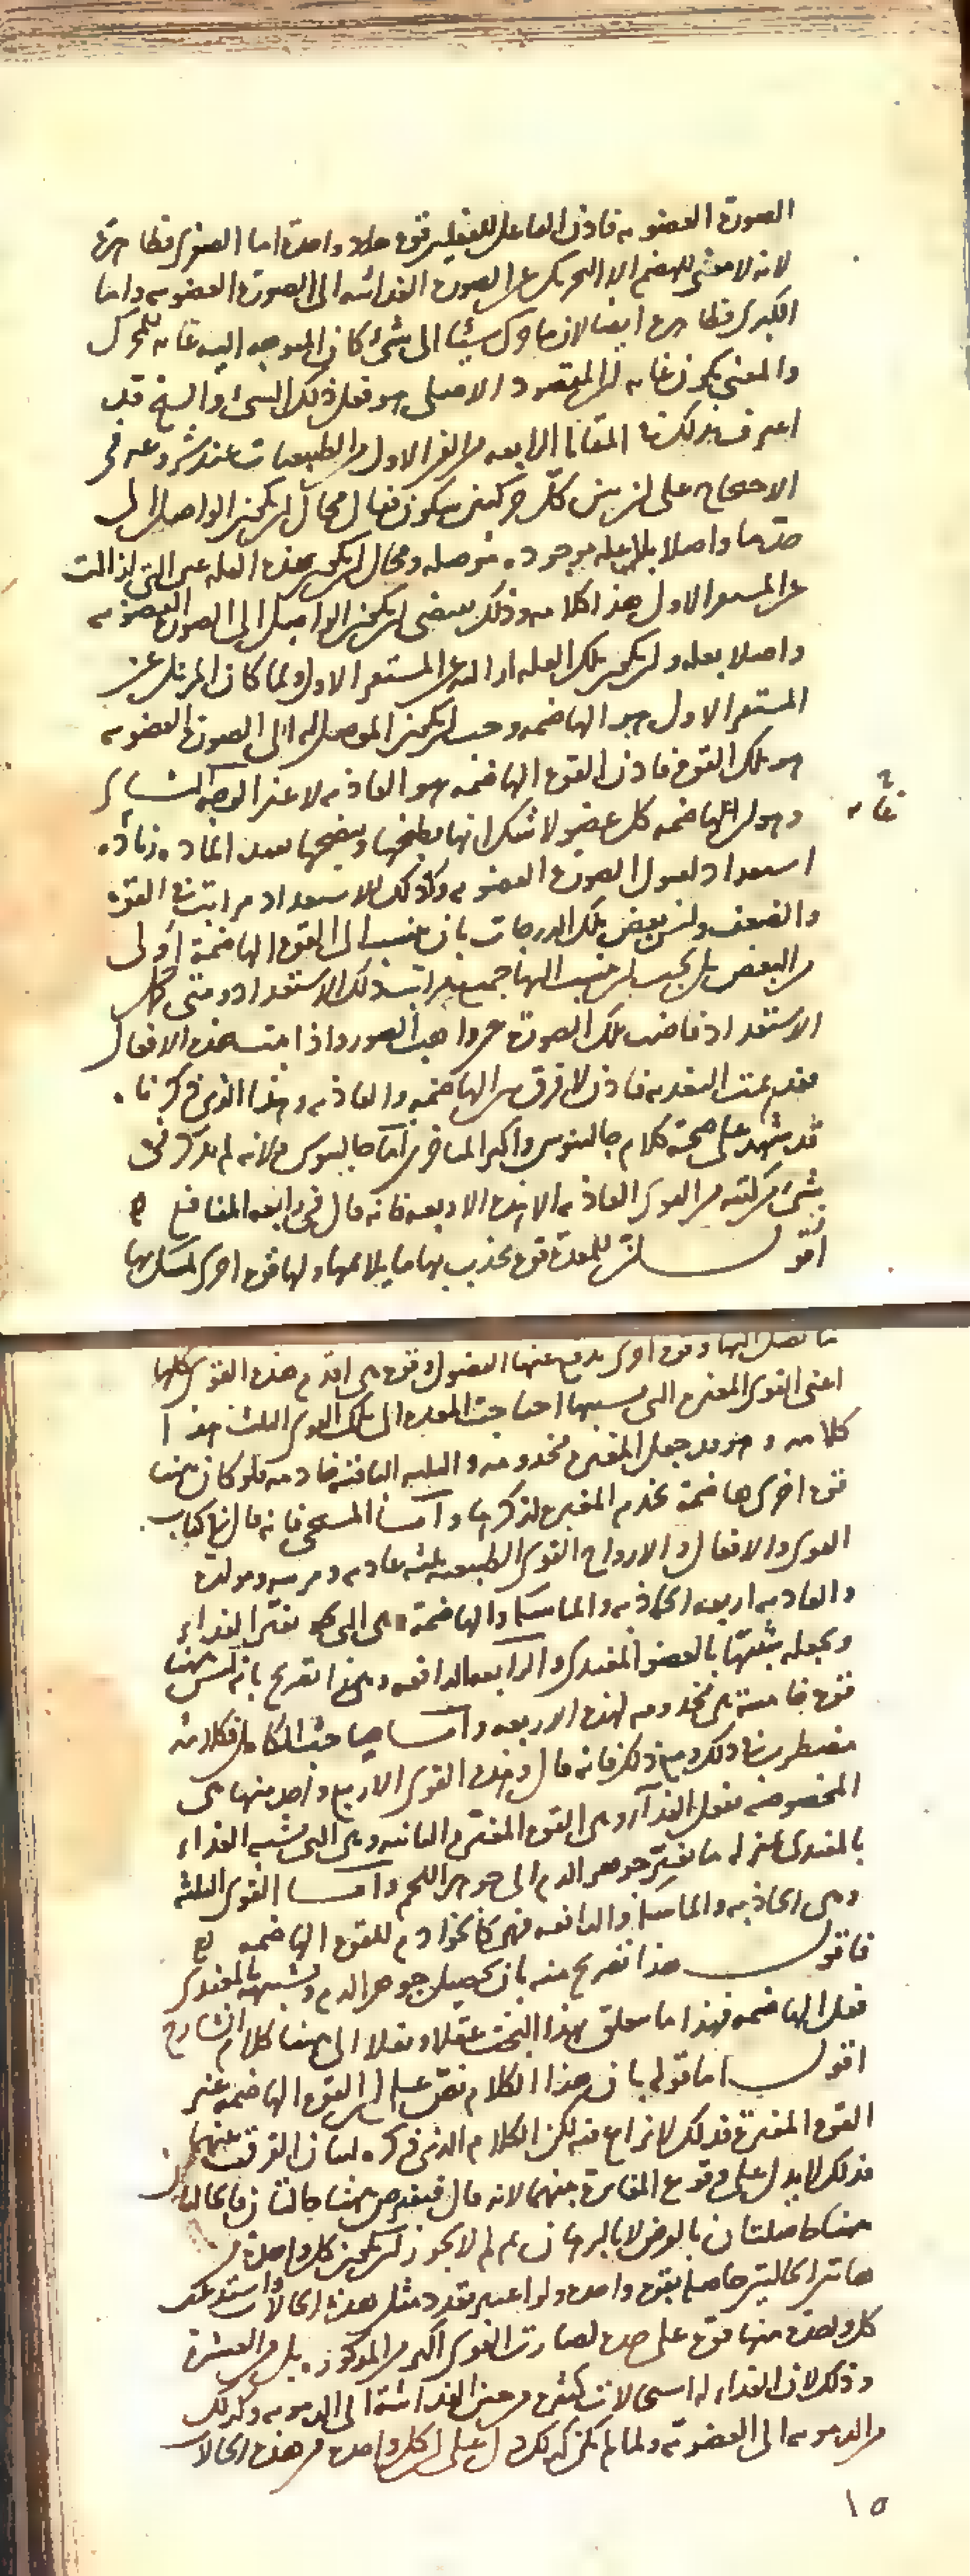 الصورة العضوية فاذن الفاعل للفعلين قوة واحدة اما الصغرى فظاهرة
لانه لا معنى للهضم الا التحريك عن الصورة الغذائية الى الصورة العضوية واما
الكبرى فظاهرة ايضا لان ما حرك شيئا الى شئ كان المتوجه اليه غاية للمحرك
والمعنى بكونه غاية ان المقصود الاصلى هو فعل ذلك الشئ والشيخ قد
اعترف بذلك فى المقالة الرابعة من الفن الاول من الطبيعيات عند شروعه فى
الاحتجاج على ان بين كل حركتين سكون فقال محال ان يكون الواصل الى
حد ما واصلا بلا علة موجودة موصلة ومحال ان يكون هذه العلة غير التى ازالت
عن المستقر الاول هذا كلامه وذلك يقتضى ان يكون الواصل الى الصورة العضوية
واصلا بعلة وان يكون تلك العلة ازالته عن المستقر الاول ولما كان المزيل عن
المستقر الاول هو الهاضمة وجب ان يكون الموصل الى الصورة العضوية
هو تلك القوة فاذن القوة الهاضمة هو الغاذية لا غير الوجه الثانى
غاية
وهو ان الهاضمة كل عضو لا شك انها بطبخها ونضجها يفيد المادة زيادة
استعداد لقبول الصورة العضوية وكذلك للاستعداد مراتب فى القوة
والضعف وليس بعض تلك الدرجات بان ينسب الى القوة الهاضمة اولى
من البعض بل يجب ان ينسب اليها جميع مراتب ذلك الاستعداد ومتى كمل
الاستعداد فاضت تلك الصورة عن واهب الصور واذا تمت هذه الافعال
فقد تمت التغذية فاذن لا فرق بين الهاضمة والغاذية وهذا الذى ذكرنا
قد يشهد على صحته كلام جالينوس واكبر المتاخرين اما جالينوس فلانه لم يذكر فى
شئ من كتبه من القوى الغاذية الا هذه الاربعة فانه قال فى رابعة المنافع
اقول ان للمعدة قوة تجذب بها ما يلايمها ولها قوة اخرى تمسك بها
ما يصل اليها وقوة اخرى يدفع عنها الفضول وقوة هى اقدم هذه القوى كلها
اعنى القوى المغيرة التى بسببها احتاجت المعدة الى تلك القوى الثلث هذا
كلامه وهو قد جعل المغيرة مخدومة والثلثة الباقية خادمة فلو كان ههنا
قوة اخرى هاضمة تخدم المغيرة لذكرها واما المسيحى فانه قال فى كتاب
القوى والافعال والارواح القوى الطبيعية ثلثة غاذية ومربية ومولدة
والغاذية اربعة الجاذبة والماسكة والهاضمة وهى التى تغير الغذاء
وتجعله شبيها بالعضو المغتذى والرابعة الدافعة وهذا تصريح بانه ليس ههنا
قوة خامسة هى مخدومة لهذه الاربعة واما صاحب الكامل فكلامه
مضطرب فى ذلك ومع ذلك فانه قال وهذه القوى الاربع واحد منها هى
المخصوصة بفعل الغذاء وهى القوة المغيرة الثانية وهى التى تشبه الغذاء
بالمغتذى بمنزلة ما تغير جوهر الدم الى جوهر اللحم واما القوى الثلثة
وهى الجاذبة والماسكة والدافعة فهى كالخوادم للقوة الهاضمة
فاقول هذا تصريح منه بان تحصيل جوهر الدم وتشبيهه بالمغتذى
فعل الهاضمة فهذا ما يتعلق بهذا البحث عقلا ونقلا الى ههنا كلام الشارح
اقول اما قوله بان هذا الكلام نص على ان القوة الهاضمة غير
القوة المغيرة فذلك لا نزاع فيه لكن الكلام الذى ذكره لبيان الفرق بينهما
فذلك لا يدل على وقوع المغايرة بينهما لانه قال فيفرض ههنا حالتان فالحالتان
ههنا حاصلتان بالفرض لا بالبرهان ثم لم لا يجوز ان يكون كل واحدة من
هاتين الحالتين حاصلة بقوة واحدة ولو اعتبر تعدد مثل هذه الحالات واستدعت
كل واحدة منها قوة على حدة لصارت القوى اكثر من المذكورة بل من العشرة
وذلك لان الغذاء له استحالات كثيرة من حين الغذائية الى الدموية وكذلك
من الدموية الى العضوية ولما لم يكن كذلك دل على ان كل واحدة من هذه الحالات
١٥